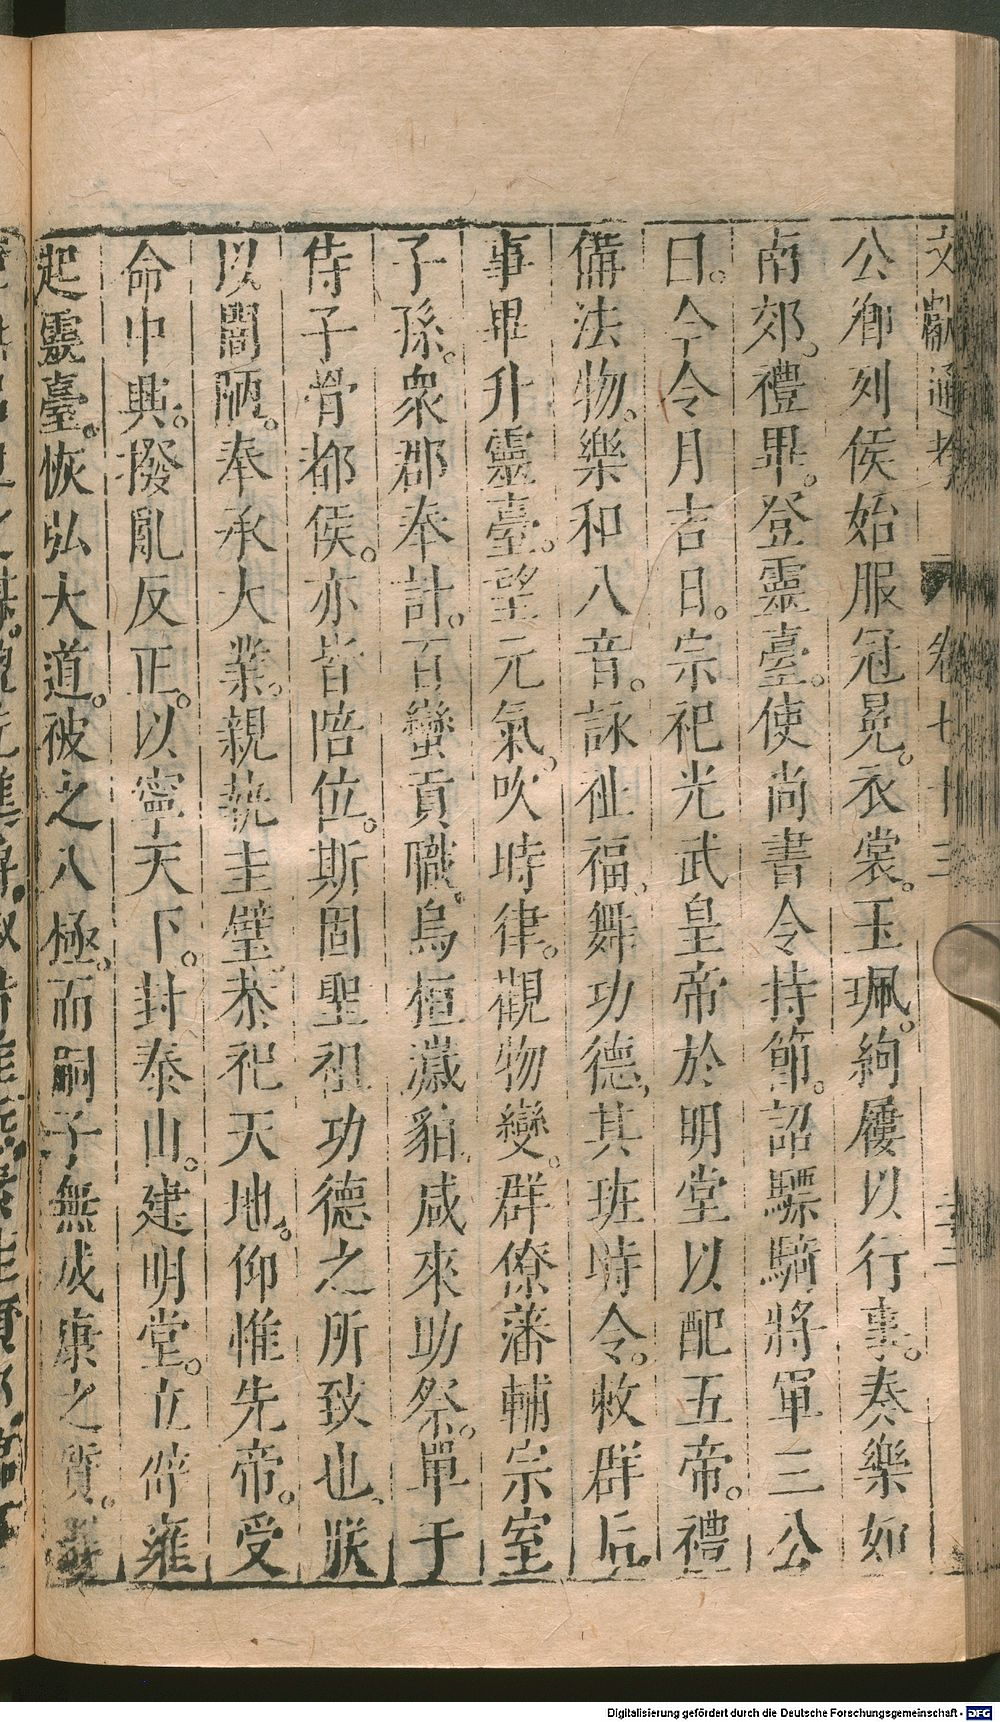 文獻通考 卷七十三
公卿列侯始服冠冕。衣裳。玉珮。絇屨以行事。奏樂如
南郊。禮畢。登靈臺。使尚書令持節。詔驃騎將軍三公
曰。今令月吉日。宗祀光武皇帝於明堂以配五帝。禮
備法物。樂和八音。詠祉福、舞功德、其班時令。敕群后。
事畢升靈臺。望元氣、吹時律。觀物變。群僚藩輔宗室
子孫。衆郡奉計。百蠻貢職。烏桓濊貊、咸來助祭。單于
侍子骨都侯。亦皆陪位。斯固聖祖功德之所致也、朕
以闇陋。奉承大業。親執圭璧。恭祀天地。仰惟先帝。受
命中興。撥亂反正。以寧天下。封泰山。建明堂。立辟雍
起靈臺。恢弘大道。被之八極。而嗣子無成康之質。
Digitalisierung gefördert durch die Deutsche Forschungsgemeinschaft - DFG